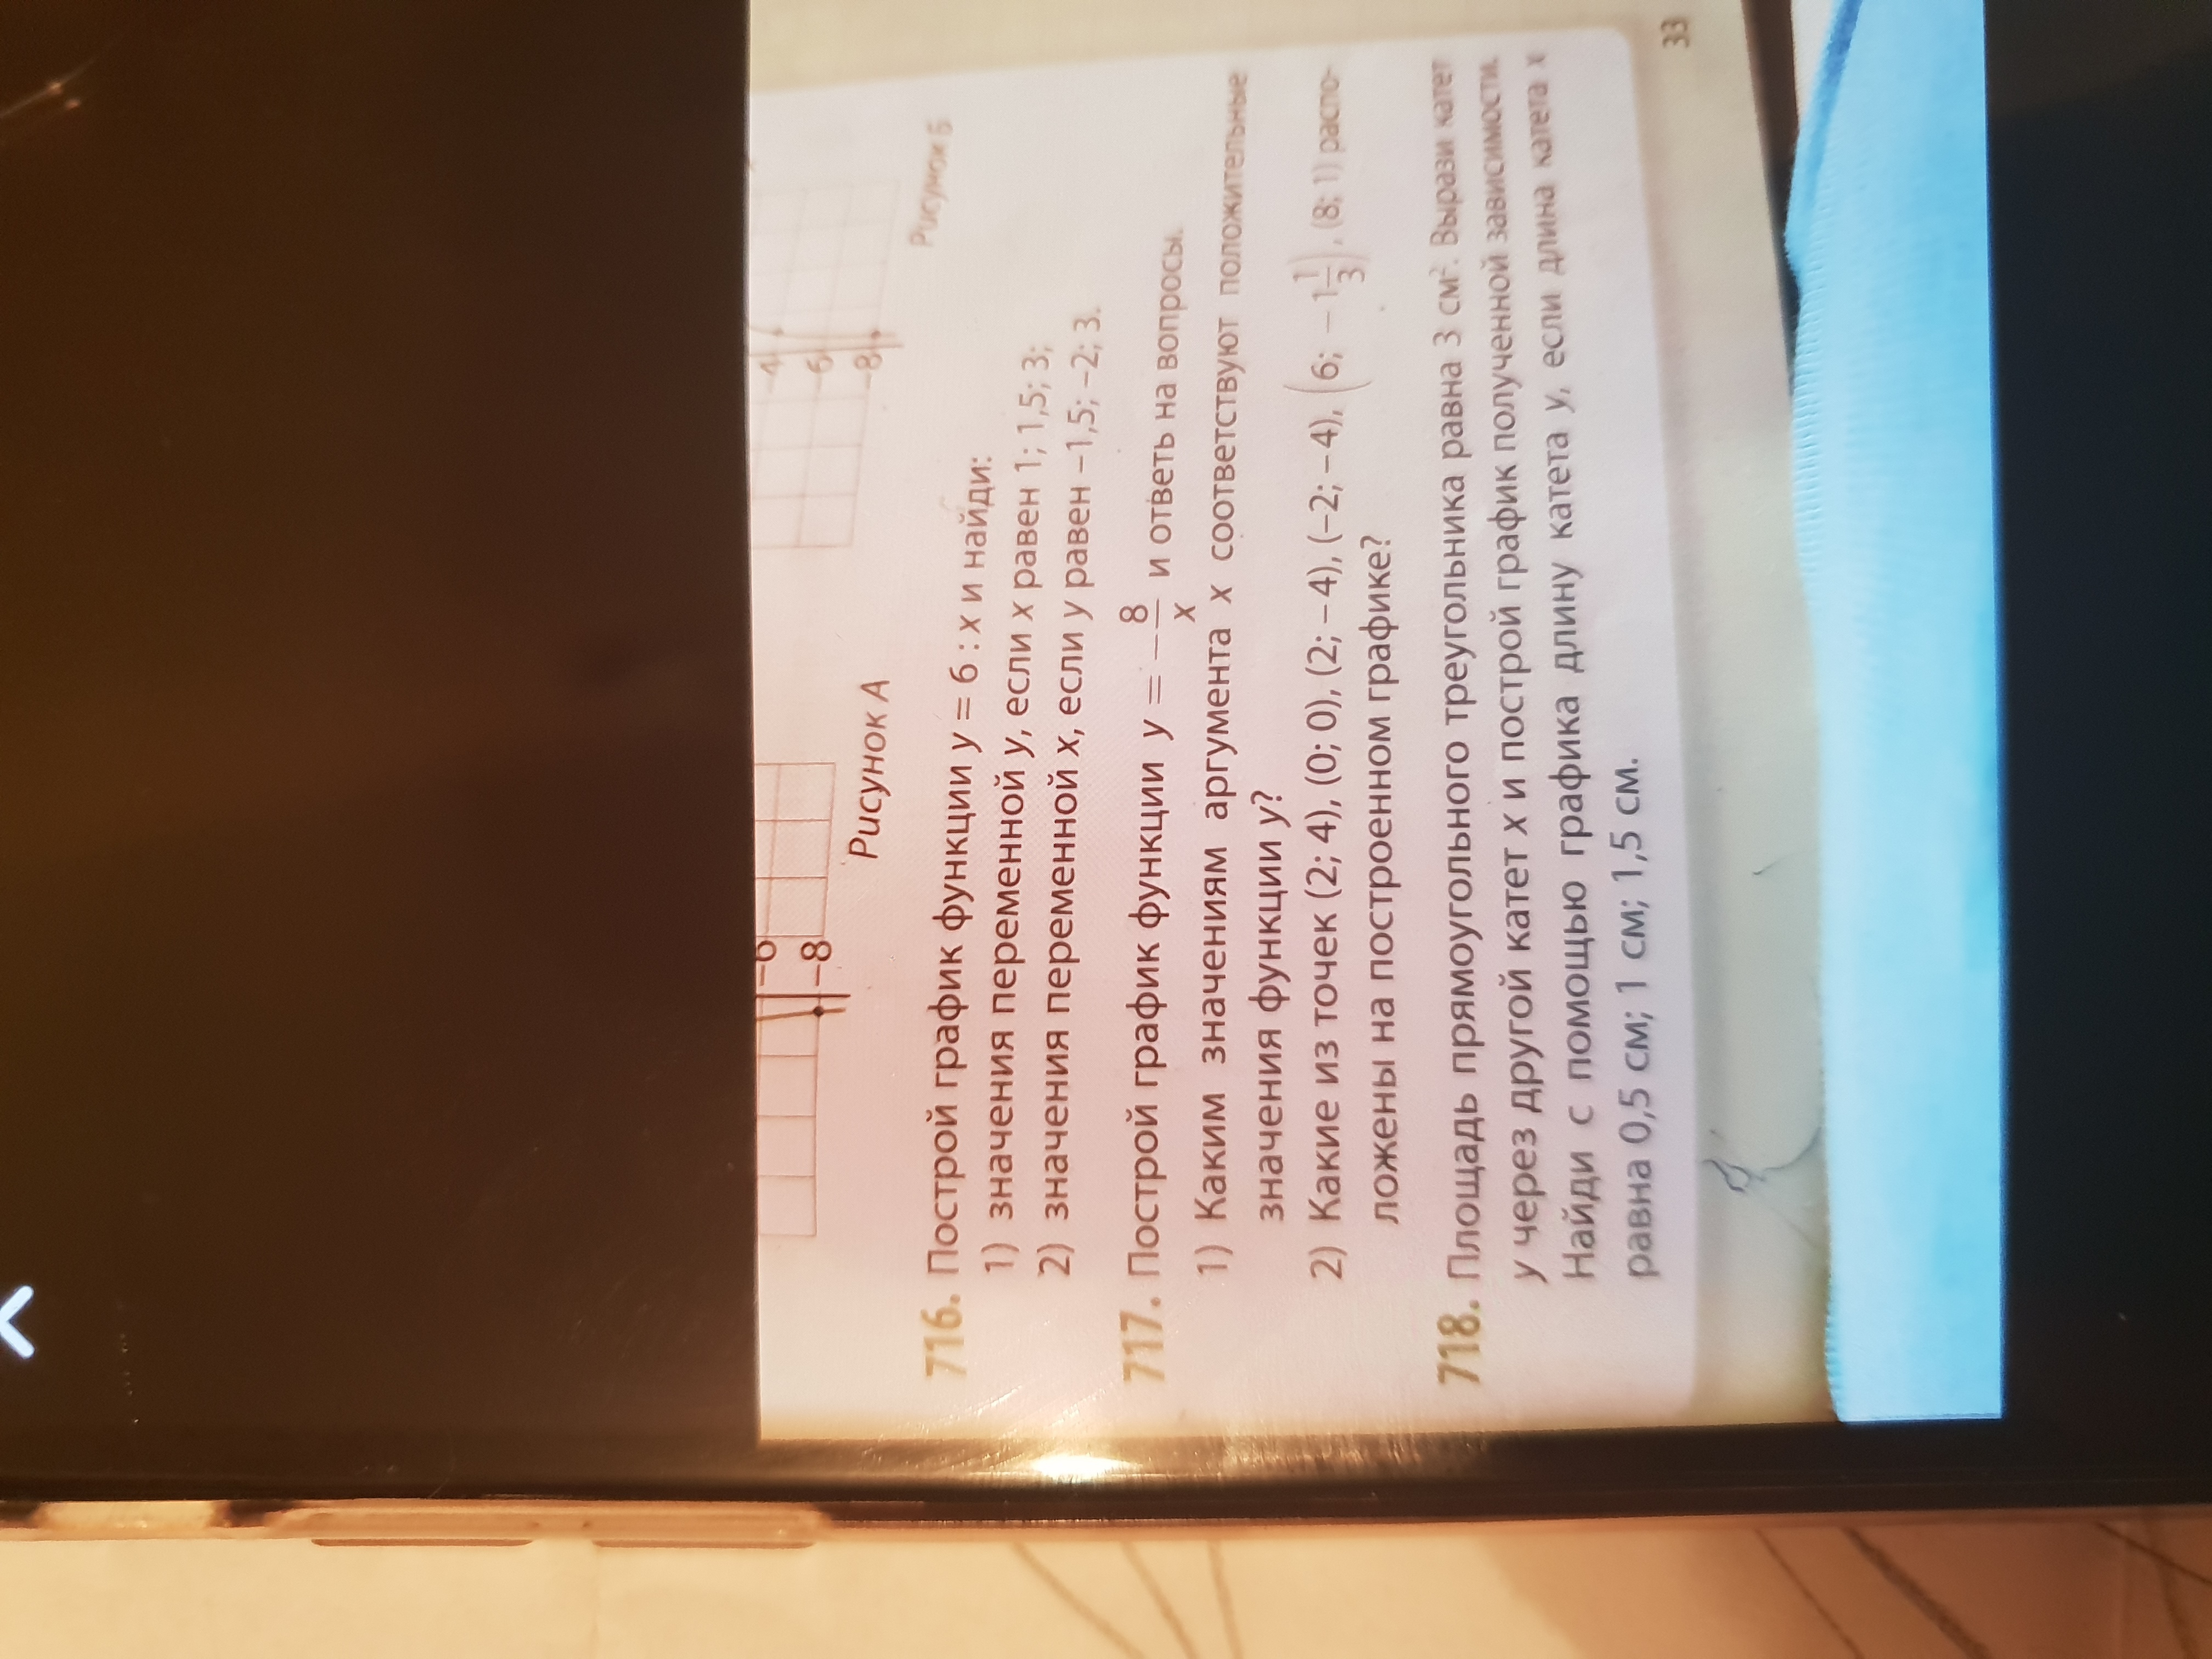 -6
-8
-4
-6
-8
Рисунок А
Рисунок Б
716. Построй график функции y = 6 : x и найди:
1) значения переменной y, если x равен 1; 1,5; 3;
2) значения переменной x, если y равен −1,5; −2; 3.
717. Построй график функции y = −8/x и ответь на вопросы.
1) Каким значениям аргумента x соответствуют положительные
значения функции y?
2) Какие из точек (2; 4), (0; 0), (2; −4), (−2; −4), (6; −1 1/3), (8; 1) распо-
ложены на построенном графике?
718. Площадь прямоугольного треугольника равна 3 см². Вырази катет
y через другой катет x и построй график полученной зависимости.
Найди с помощью графика длину катета y, если длина катета x
равна 0,5 см; 1 см; 1,5 см.
33